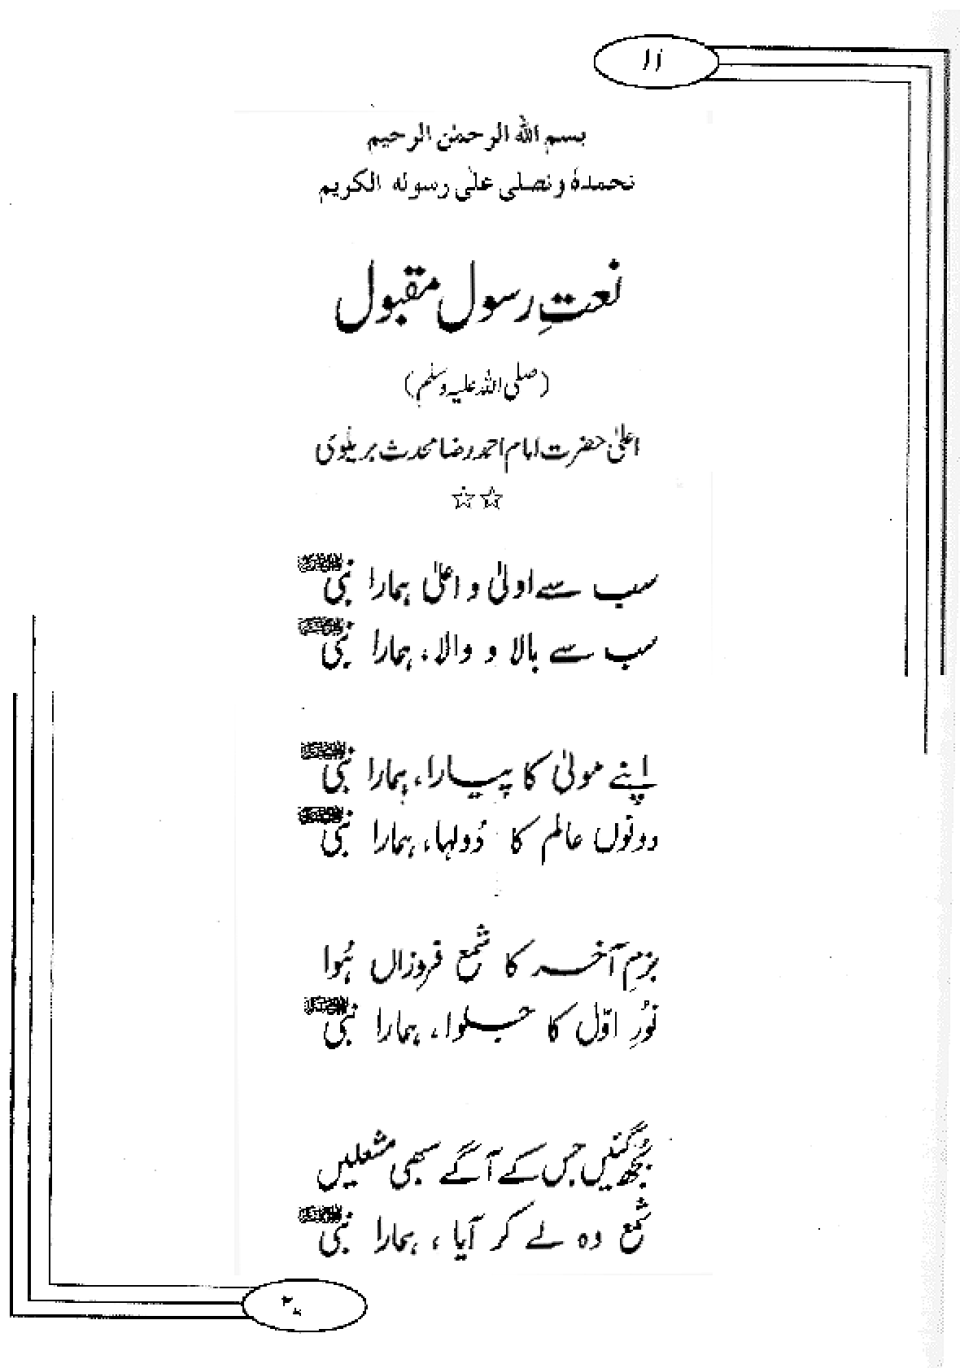 اا
بسم الله الرحمٰن الرحیم
نحمدہٗ و نصلی علٰی رسولہ الکریم
نعتِ رسول مقبول
(صلی اللہ علیہ وسلم)
اعلیٰ حضرت امام احمد رضا محدث بریلوی
☆☆
سب سے اولیٰ و اعلیٰ ہمارا نبی ﷺ
سب سے بالا و والا، ہمارا نبی ﷺ
اپنے مولیٰ کا پیارا، ہمارا نبی ﷺ
دونوں عالم کا دُولہا، ہمارا نبی ﷺ
بزمِ آخر کا شمع فروزاں ہُوا
نُورِ اوّل کا جلوا، ہمارا نبی ﷺ
بُجھ گئیں جس کے آگے سبھی مشعلیں
شمع وہ لے کر آیا، ہمارا نبی ﷺ